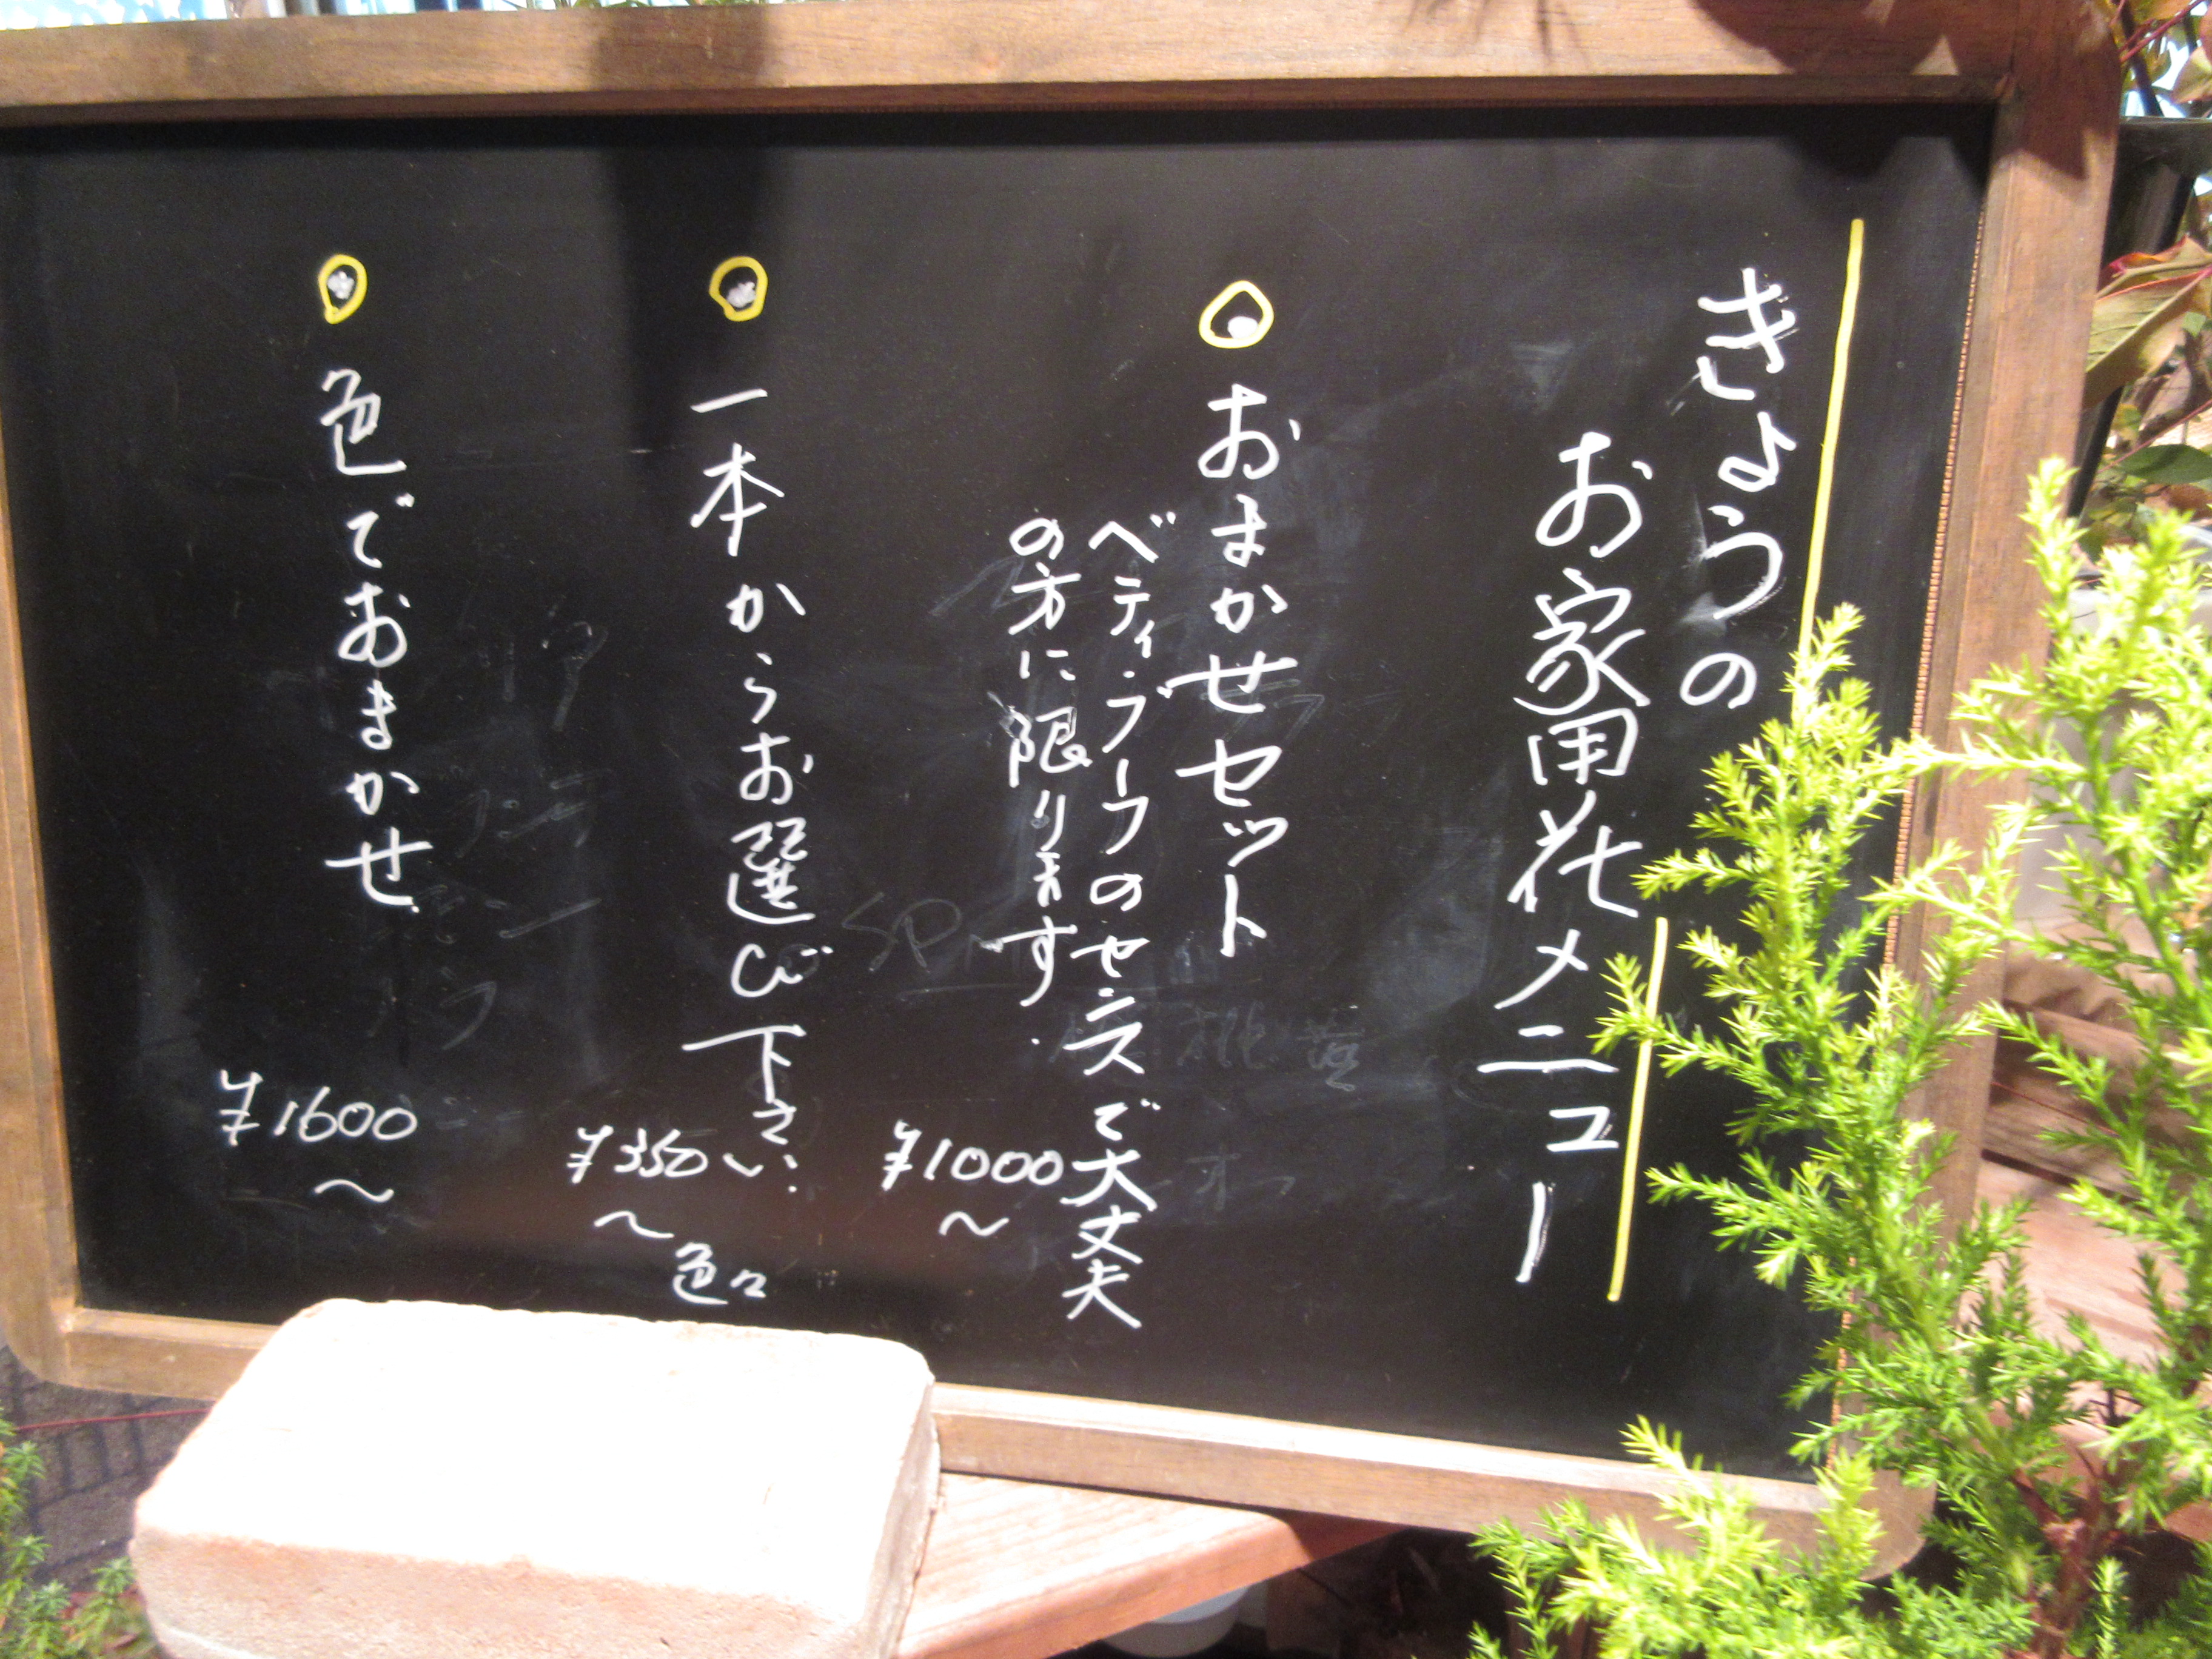 きょうの
お家用花メニュー
おまかせセット
ベティ・ブーフのセンスで大丈夫
の方に限ります.
¥1000
〜
一本からお選び下さい.
¥350
〜
色々
色でおまかせ.
¥1600
〜